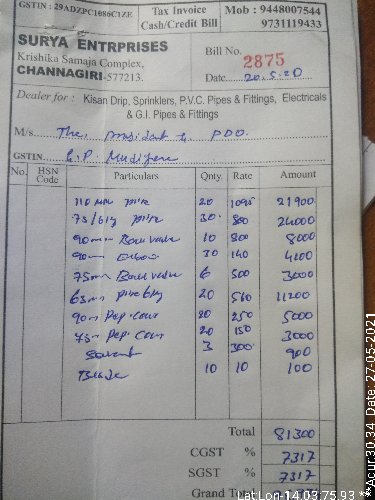 GSTIN : 29ADZPC1686C1ZE
Tax Invoice
Cash/Credit Bill
Mob : 9448007544
9731119433
SURYA ENTRPRISES
Krishika Samaja Complex,
CHANNAGIRI-577213.
Bill No.
2875
Date 20.5.20
Dealer for : Kisan Drip, Sprinklers, P.V.C. Pipes & Fittings, Electricals
& G.I. Pipes & Fittings
M/s. The, President & PDO.
GSTIN G.P. Mudigere
No. HSN Code Particulars Qnty. Rate Amount
110 mm 20 1095 21900
75/6kg 30 800 24000
90mm Ball valve 10 800 8000
90mm Elbow 30 140 4200
75mm Ball valve 6 500 3000
63mm 6kg 20 560 11200
90m 20 250 5000
75m 20 150 3000
Solvent 3 300 900
Blade 10 10 100
Total 81300
CGST % 7317
SGST % 7317
Grand
Lat:Lon-14.03:75.93 **Acur:30.34 Date: 27-05-2021